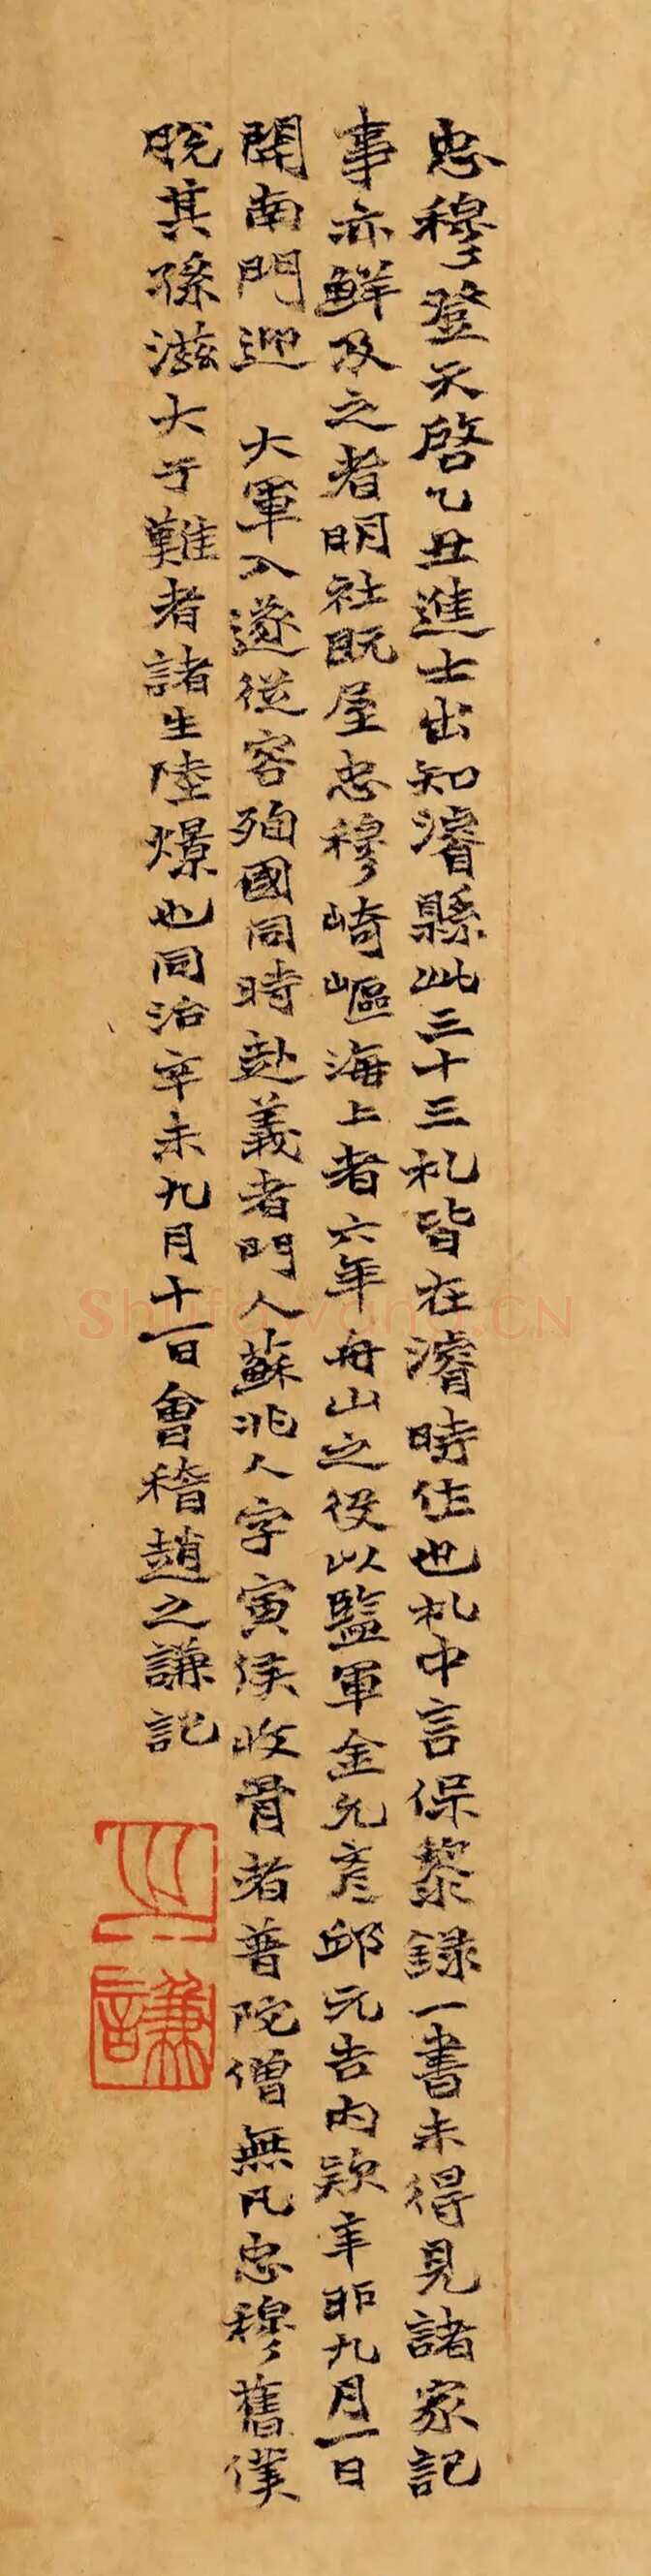 忠穆登天啓乙丑進士出知濬縣此三十三札皆在濬時作也札中言保黎録一書未得見諸家記
事亦鮮及之者明社既屋忠穆崎嶇海上者六年舟山之役以監軍金允彥邱元吉内款辛卯九月一日
開南門迎 大軍入遂從容殉國同時赴義者門人蘇兆人字寅侯收骨者普陀僧無凡忠穆舊僕
脫其孫滋大于難者諸生陸燝也同治辛未九月十一日會稽趙之謙記
之謙
ShufaWang.CN